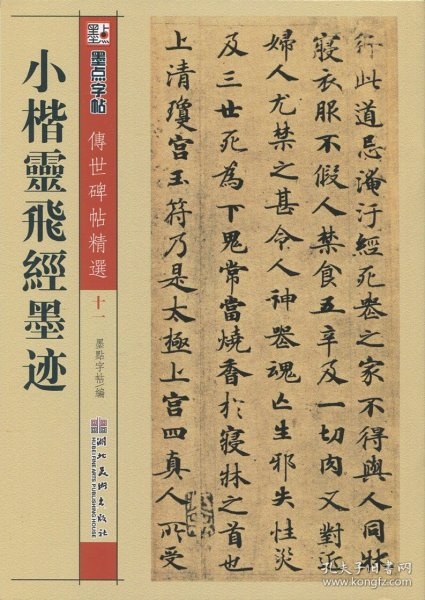 墨点
墨点字帖
傳世碑帖精選
十一
墨點字帖/編
湖北美术出版社
HUBEI FINE ARTS PUBLISHING HOUSE
小楷靈飛經墨迹
行此道忌淹汙經死喪之家不得與人同牀
寢衣服不假人禁食五辛及一切肉又對近
婦人尤禁之甚令人神喪魂亡生邪失性災
及三世死為下鬼常當燒香於寢牀之首也
上清瓊宮玉符乃是太極上宮四真人所受
孔夫子旧书网
www.kongfz.com